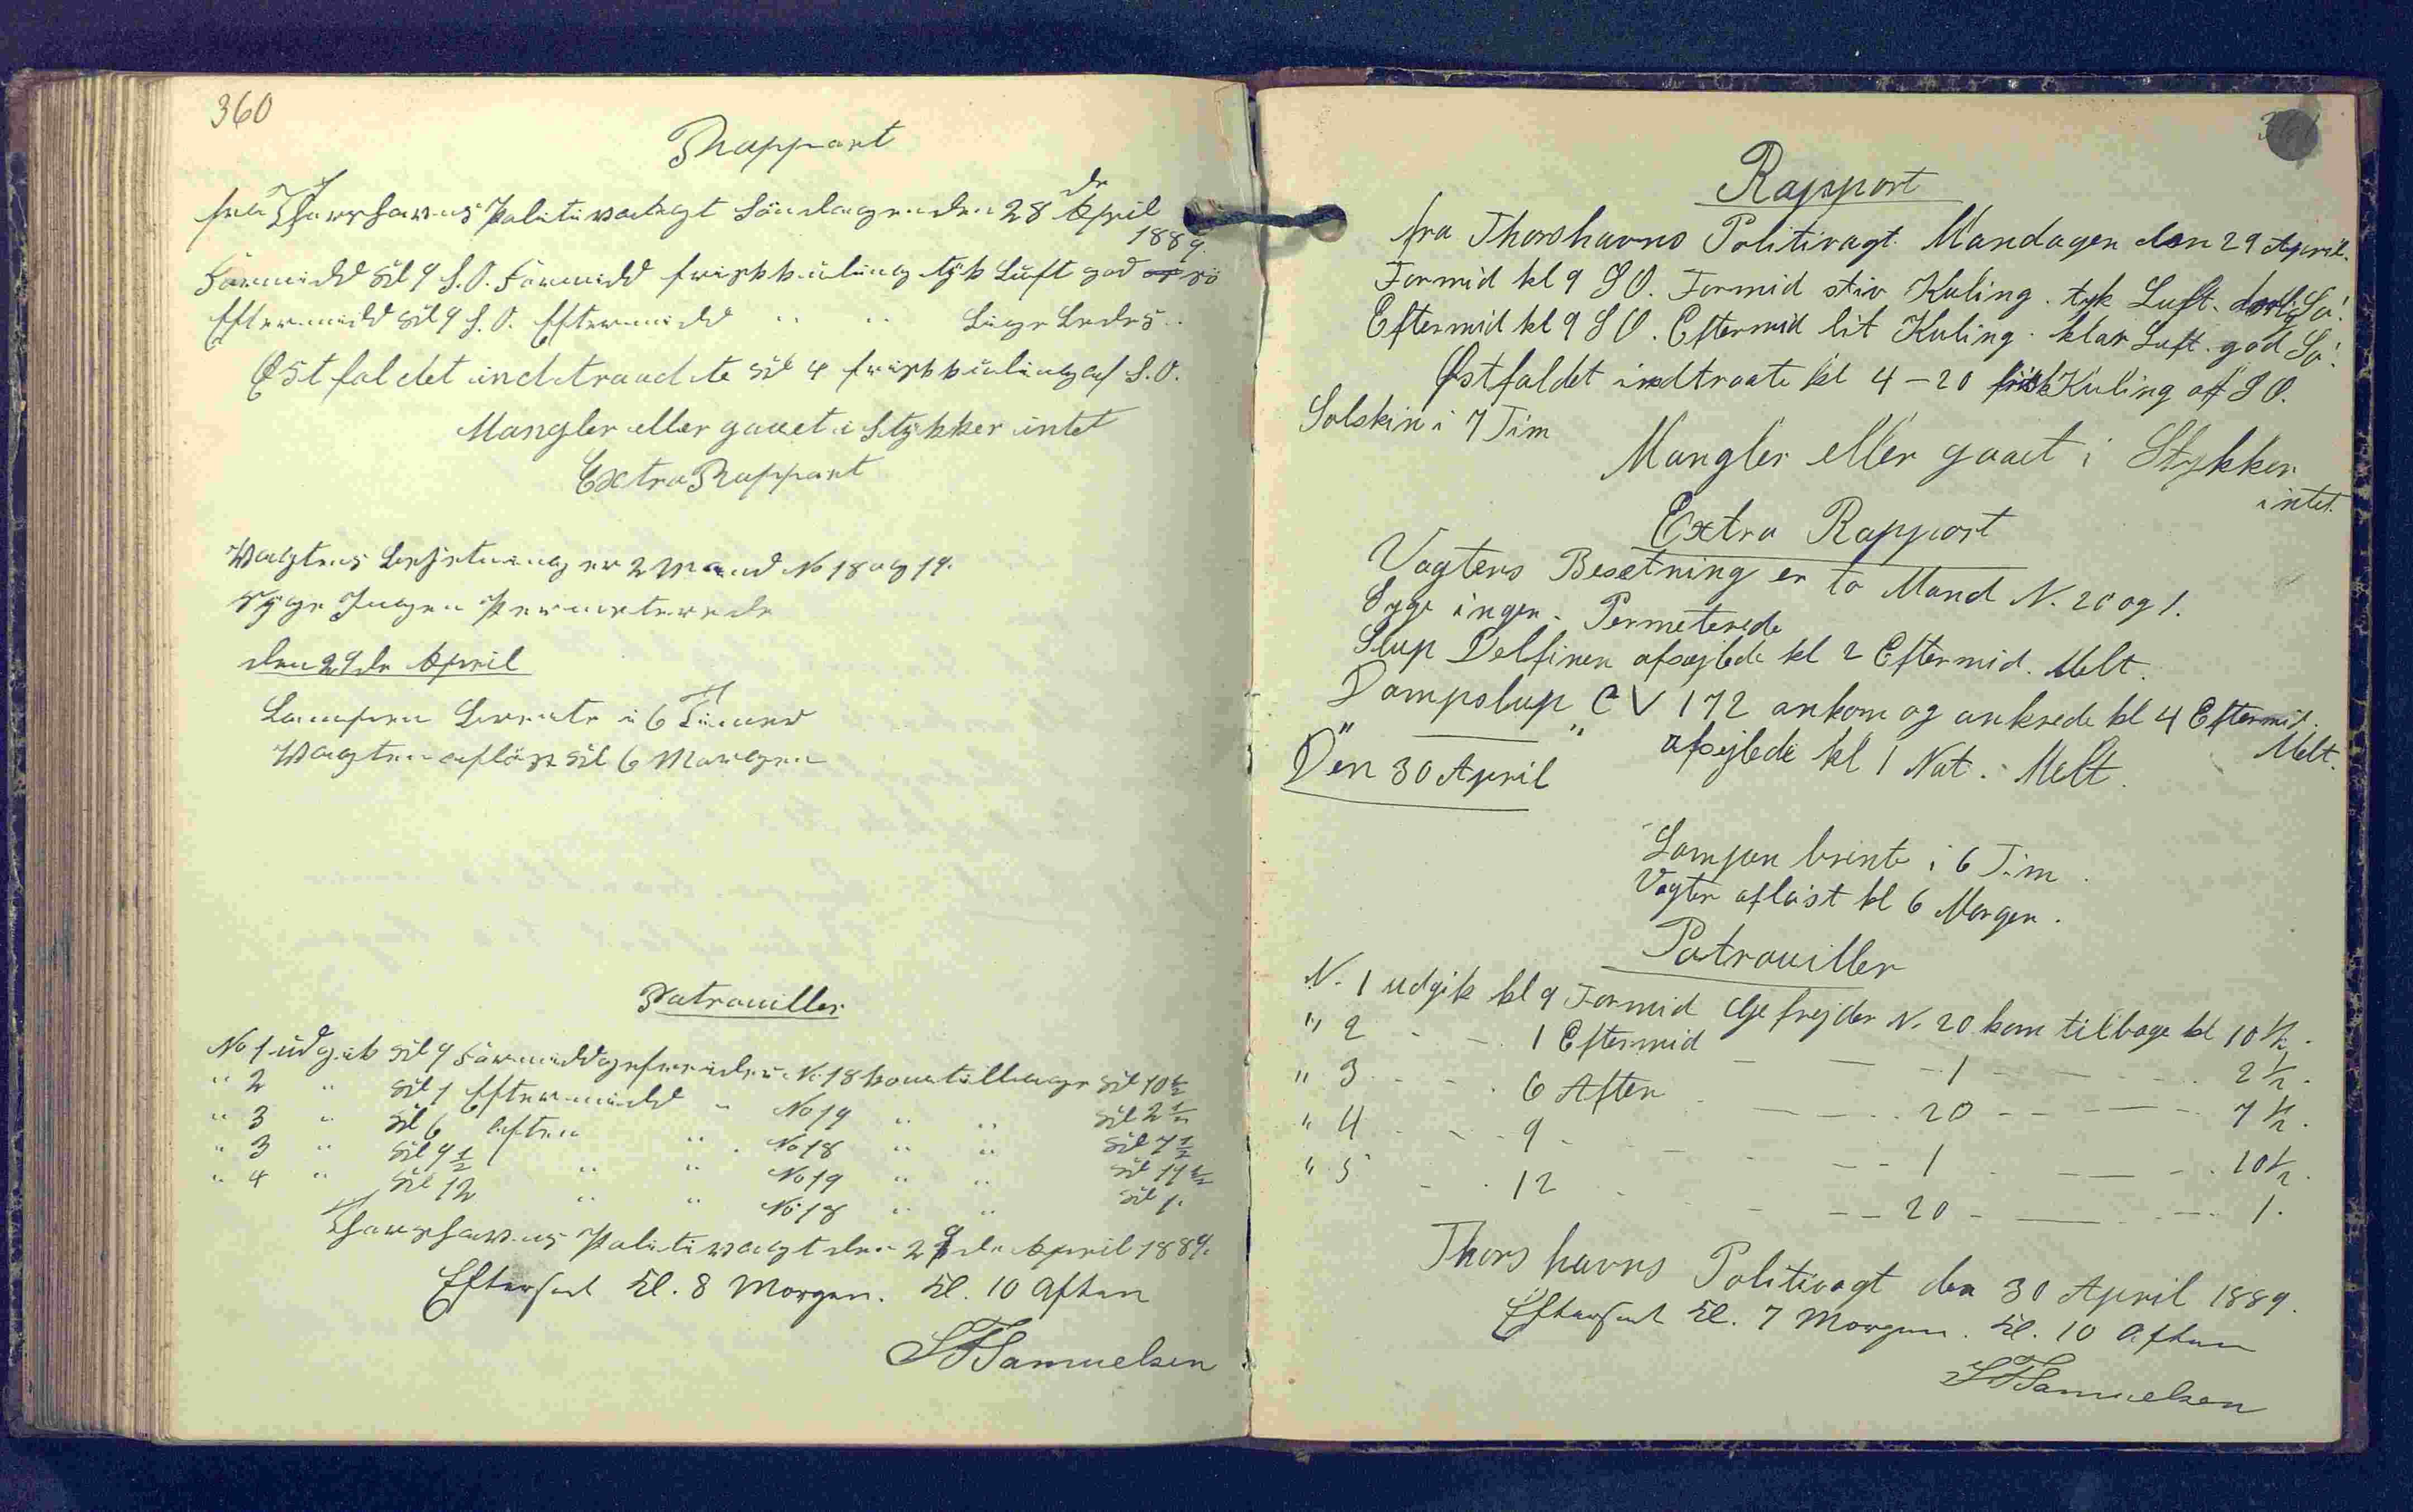 360
Rapport
fra Thorshavns Politivagt Söndagen den 28 de April
1889.
Formidd Kl 9 S.O. Formidd frisk kuling tyk Luft god sö
Eftermidd Kl 9 S.O. Eftermidd " " Lige Ledes "
Østfaldet indtraadte Kl 4 frisk kuling af S.O.
Mangler eller gaaet i Stykker intet
Extra Rapport
Vagtens Besetning er 2 Mand No 18 og 19.
Syge Ingen Permeterede
den 29 de April
Lampen brente i 6 Timer
Vagten aflöst Kl 6 Morgen
Patrouiller
No 1 udgik Kl 9 Formidd gefreider No 18 kom tilbage Kl 10 1/2
" 2 " Kl 1 Eftermidd " No 19 " " Kl 2 1/2
" 3 " Kl 6 Aften " No 18 " " Kl 7 1/2
" 3 " Kl 9 1/2 " " No 19 " " Kl 11 1/2
" 4 " Kl 12 " " No 18 " " Kl 1.
Thorshavns Politivagt den 29 de April 1889.
Efterset Kl. 8 Morgen. Kl. 10 Aften
SFSamuelsen
361
Rapport
fra Thorshavns Politivagt Mandagen den 29 April.
Formid kl 9 SO. Formid stiv Kuling. tyk Luft. daarlig Sö.
Eftermid kl 9 SO. Eftermid lit Kuling. klar Luft. god Sö.
Østfaldet indtraate kl 4-20 frisk Kuling af SO.
Solskin i 7 Tim
Mangler eller gaaet i Stykker
intet.
Extra Rapport
Vagtens Besetning er to Mand N. 20 og 1.
Syge ingen. Permeterede
Slup Delfinen afsejlede kl 2 Eftermid. Melt.
Dampslup CV 172 ankom og ankrede kl 4 Eftermid.
Melt.
" " afsejlede kl 1 Nat. Melt.
Den 30 April
Lampen brente i 6 Tim.
Vagten aflöst kl 6 Morgen.
Patrouiller
N. 1 udgik kl 9 Formid Gefrejder N. 20 kom tilbage kl 10 1/2.
" 2 - - 1 Eftermid - - 1 - - 2 1/2.
" 3 - - 6 Aften - - 20 - - 7 1/2.
" 4 - - 9 - - 1 - - 10 1/2.
" 5 - - 12 - - 20 - - 1.
Thorshavns Politivagt den 30 April 1889.
Efterset Kl. 7 Morgen. Kl. 10 Aften
SFSamuelsen